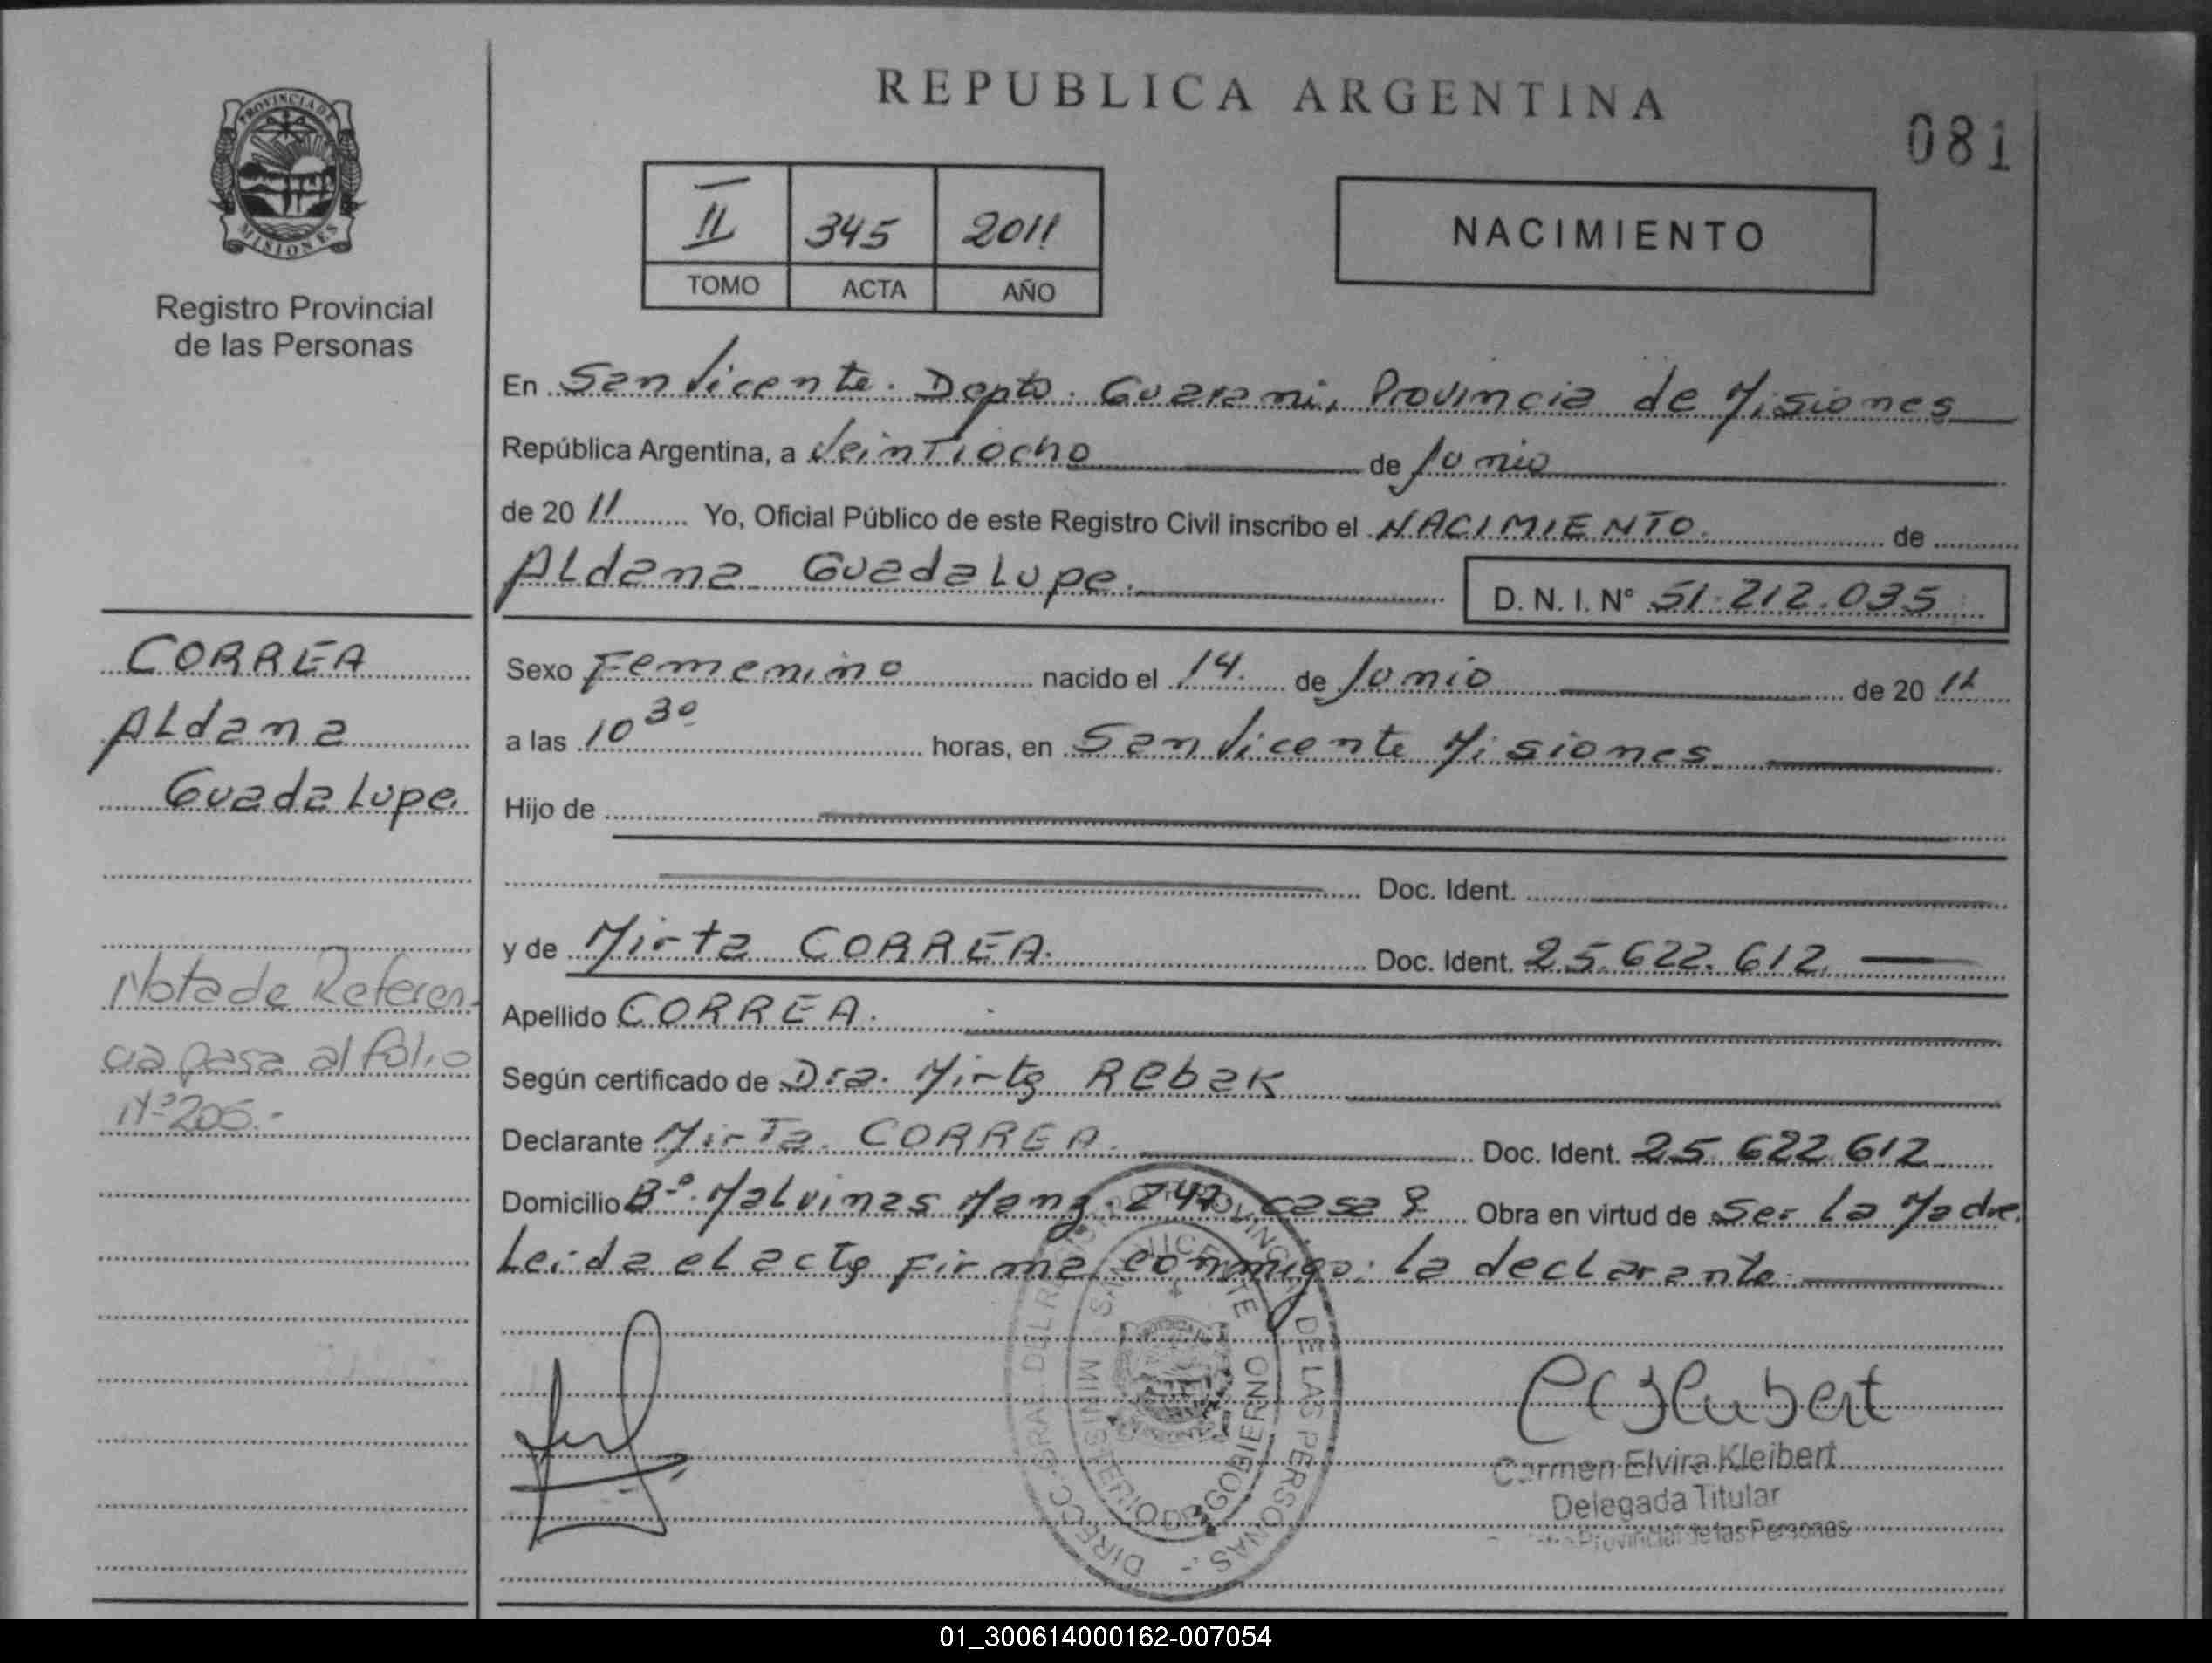 REPUBLICA ARGENTINA
081
PROVINCIA DE
MISIONES
Registro Provincial
de las Personas
II 345 2011
TOMO ACTA AÑO
NACIMIENTO
En San Vicente. Depto. Guarani, Provincia de Misiones
República Argentina, a Veintiocho de Junio
de 20 11 Yo, Oficial Público de este Registro Civil inscribo el NACIMIENTO. de
Aldana Guadalupe.
D. N. I. N° 51.212.035
CORREA
Aldana
Guadalupe.
Sexo Femenino nacido el 14. de Junio de 20 11
a las 10 30 horas, en San Vicente Misiones
Hijo de
Doc. Ident.
y de Mirta CORREA. Doc. Ident. 25.622.612
Apellido CORREA.
Nota de Referen-
cia pasa al folio
Nº 205.-
Según certificado de Dra. Mirta Rebak
Declarante Mirta CORREA. Doc. Ident. 25.622.612
Domicilio Bº. Malvinas Manz. 247 casa 9 Obra en virtud de Ser la Madre.
Leida el acta firma conmigo: la declarante
DIRECC. GRAL. DEL REGISTRO PROVINCIAL DE LAS PERSONAS.-
SAN VICENTE
MINISTERIO DE GOBIERNO
Carmen Elvira Kleibert
Delegada Titular
Provincial de las Personas
01_300614000162-007054